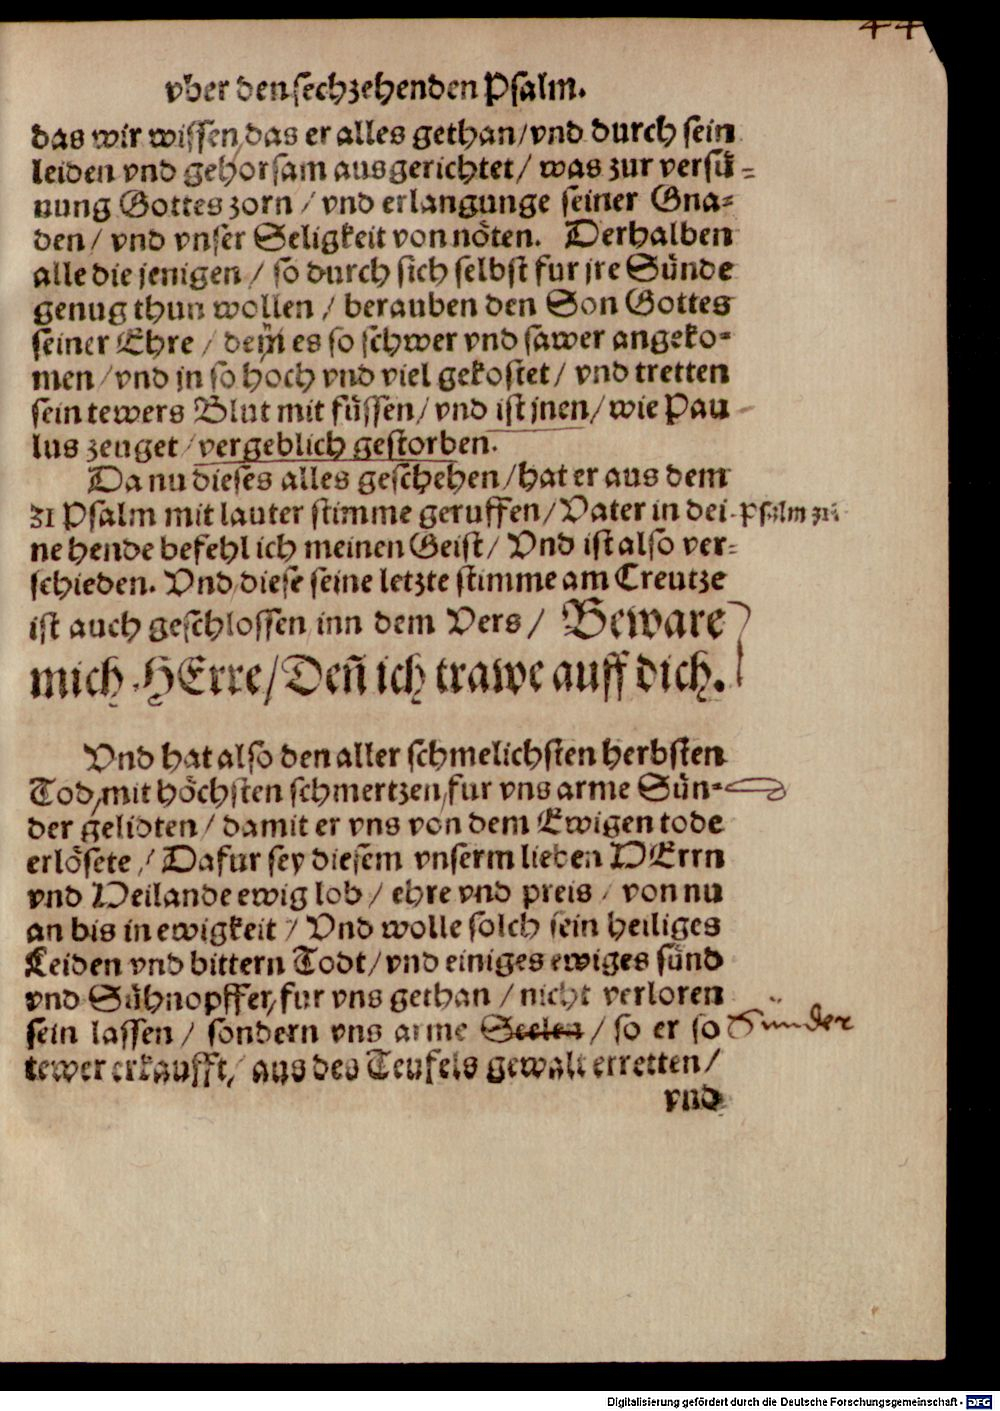 44
vber den sechzehenden Psalm.
das wir wissen, das er alles gethan / vnd durch sein
leiden vnd gehorsam ausgerichtet / was zur versü=
nung Gottes zorn / vnd erlangunge seiner Gna=
den / vnd vnser Seligkeit von nöten. Derhalben
alle die jenigen / so durch sich selbst fur jre Sünde
genug thun wollen / berauben den Son Gottes
seiner Ehre / dem es so schwer vnd sawer angeko=
men / vnd jn so hoch vnd viel gekostet / vnd tretten
sein tewers Blut mit füssen / vnd ist jnen / wie Pau
lus zeuget / vergeblich gestorben.
Da nu dieses alles geschehen / hat er aus dem
31 Psalm mit lauter stimme geruffen / Vater in dei- Psalm 31.
ne hende befehl ich meinen Geist / Vnd ist also ver=
schieden. Vnd diese seine letzte stimme am Creutze
ist auch geschlossen inn dem Vers / Beware
mich HErre / Deñ ich trawe auff dich.
Vnd hat also den aller schmelichsten herbsten
Tod, mit höchsten schmertzen, fur vns arme Sün=
der gelidten / damit er vns von dem Ewigen tode
erlösete / Dafur sey diesem vnserm lieben HErrn
vnd Heilande ewig lob / ehre vnd preis / von nu
an bis in ewigkeit / Vnd wolle solch sein heiliges
Leiden vnd bittern Todt / vnd einiges ewiges sünd
vnd Sühnopffer, fur vns gethan / nicht verloren
sein lassen / sondern vns arme Seelen / so er so Sünder
tewer erkaufft / aus des Teufels gewalt erretten /
vnd
Digitalisierung gefördert durch die Deutsche Forschungsgemeinschaft - DFG